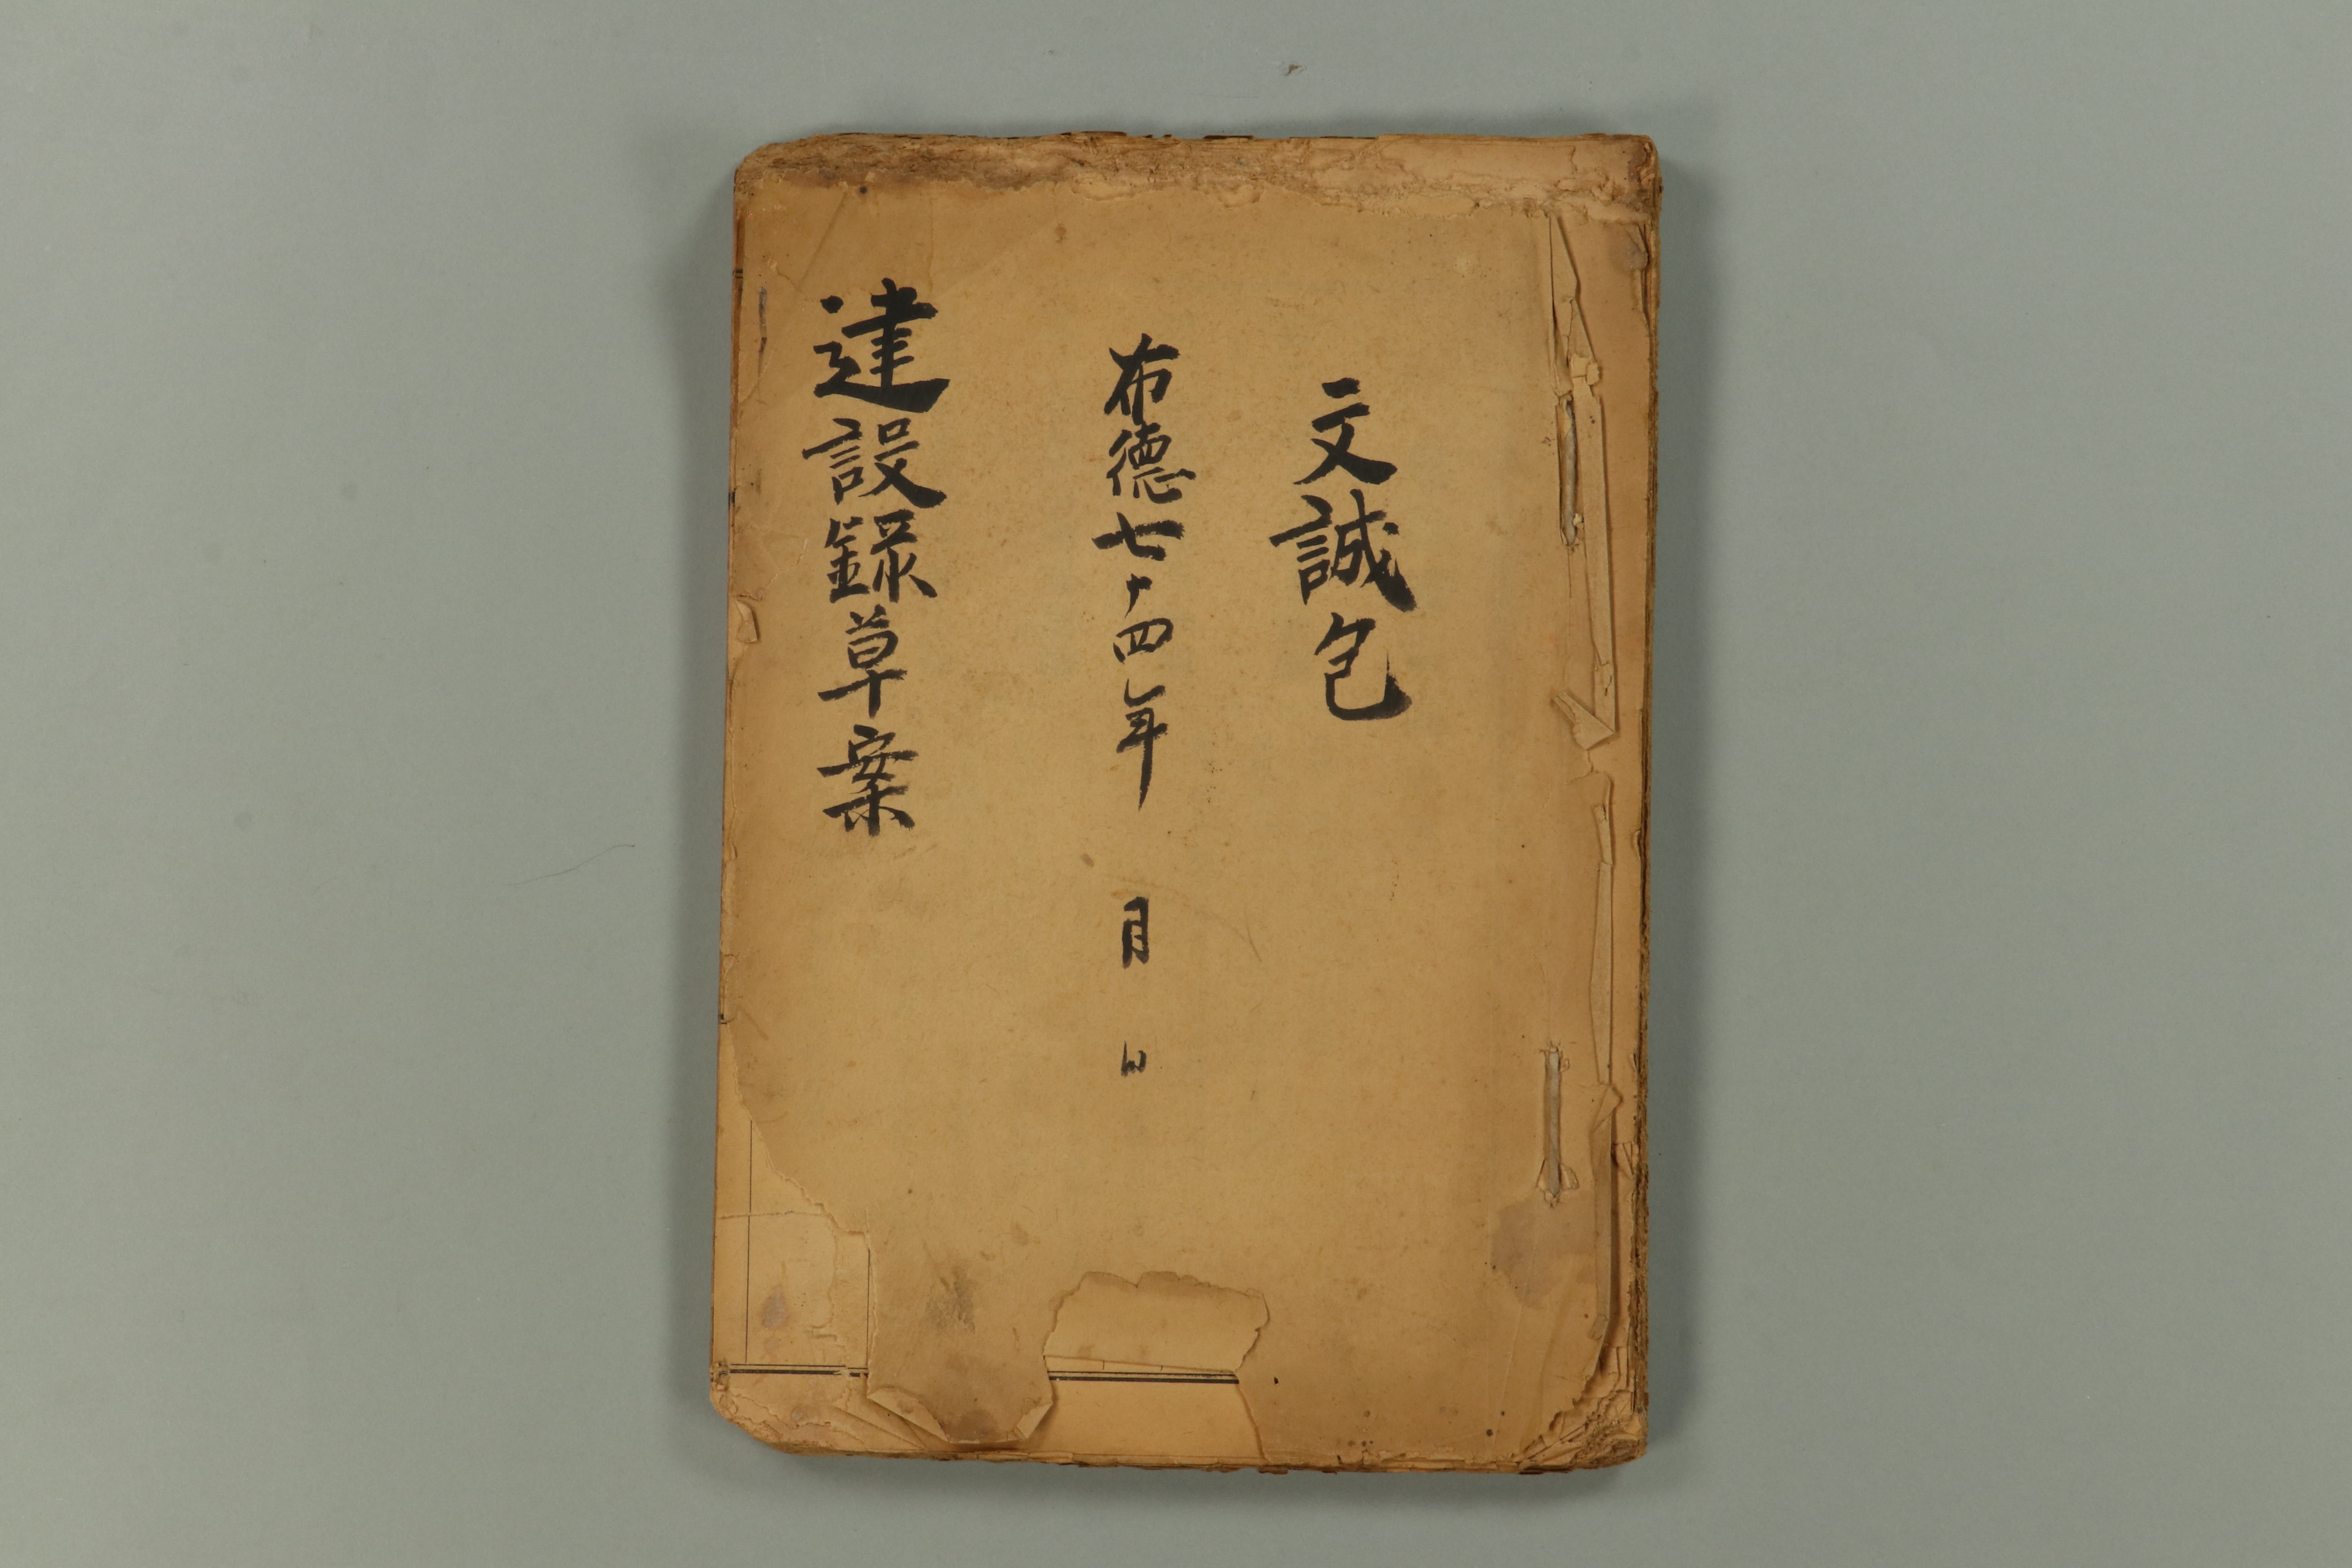 文誠包
布德七十四年 月 日
建設録草案